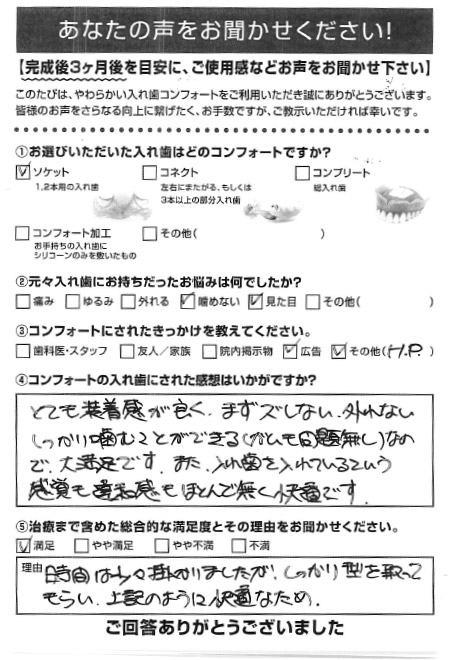 あなたの声をお聞かせください!
【完成後3ヶ月後を目安に、ご使用感などお声をお聞かせ下さい】
このたびは、やわらかい入れ歯コンフォートをご利用いただき誠にありがとうございます。
皆様のお声をさらなる向上に繋げたく、お手数ですが、ご教示いただければ幸いです。
①お選びいただいた入れ歯はどのコンフォートですか?
☑ソケット □コネクト □コンプリート
1,2本用の入れ歯 左右にまたがる、もしくは 総入れ歯
3本以上の部分入れ歯
□コンフォート加工 □その他( )
お手持ちの入れ歯に
シリコーンのみを敷いたもの
②元々入れ歯にお持ちだったお悩みは何でしたか?
□痛み □ゆるみ □外れる ☑噛めない ☑見た目 □その他( )
③コンフォートにされたきっかけを教えてください。
□歯科医・スタッフ □友人/家族 □院内掲示物 ☑広告 ☑その他(H.P.)
④コンフォートの入れ歯にされた感想はいかがですか?
とても装着感が良く、まずズレしない、外れない
しっかり噛むことができる(がいも問題無し)なの
で、大満足です。また、入れ歯を入れているという
感覚も違和感もほとんど無く快適です。
⑤治療まで含めた総合的な満足度とその理由をお聞かせください。
☑満足 □やや満足 □やや不満 □不満
理由 時間は少々掛かりましたが、しっかり型を取って
もらい、上記のように快適なため。
ご回答ありがとうございました